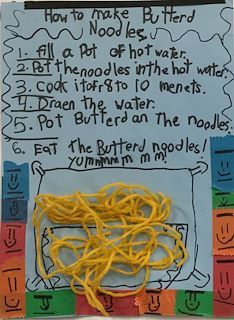 How to make Butterd
Noodles.
1. fill a pot of hot water.
2. Pot the noodles in the hot water.
3. Cook it ofr 8 to 10 menets.
4. Draen the water.
5. Pot Butterd an the noodles.
6. Eat The Butterd noodles!
Yummmmm m m!